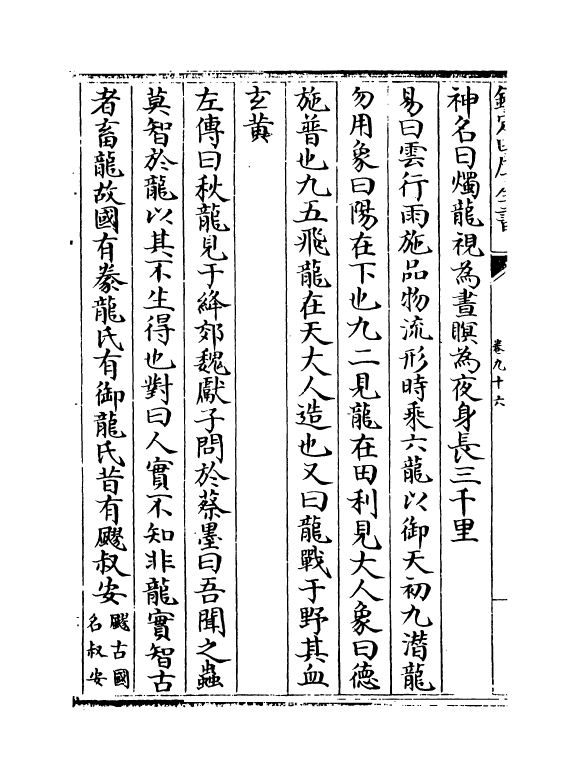 欽定四庫全書
卷九十六
神名曰燭龍視為晝瞑為夜身長三千里
易曰雲行雨施品物流形時乘六龍以御天初九潛龍
勿用象曰陽在下也九二見龍在田利見大人象曰德
施普也九五飛龍在天大人造也又曰龍戰于野其血
玄黃
左傳曰秋龍見于絳郊魏獻子問於蔡墨曰吾聞之蟲
莫智於龍以其不生得也對曰人實不知非龍實智古
者畜龍故國有豢龍氏有御龍氏昔有飂叔安
飂古國
名叔安